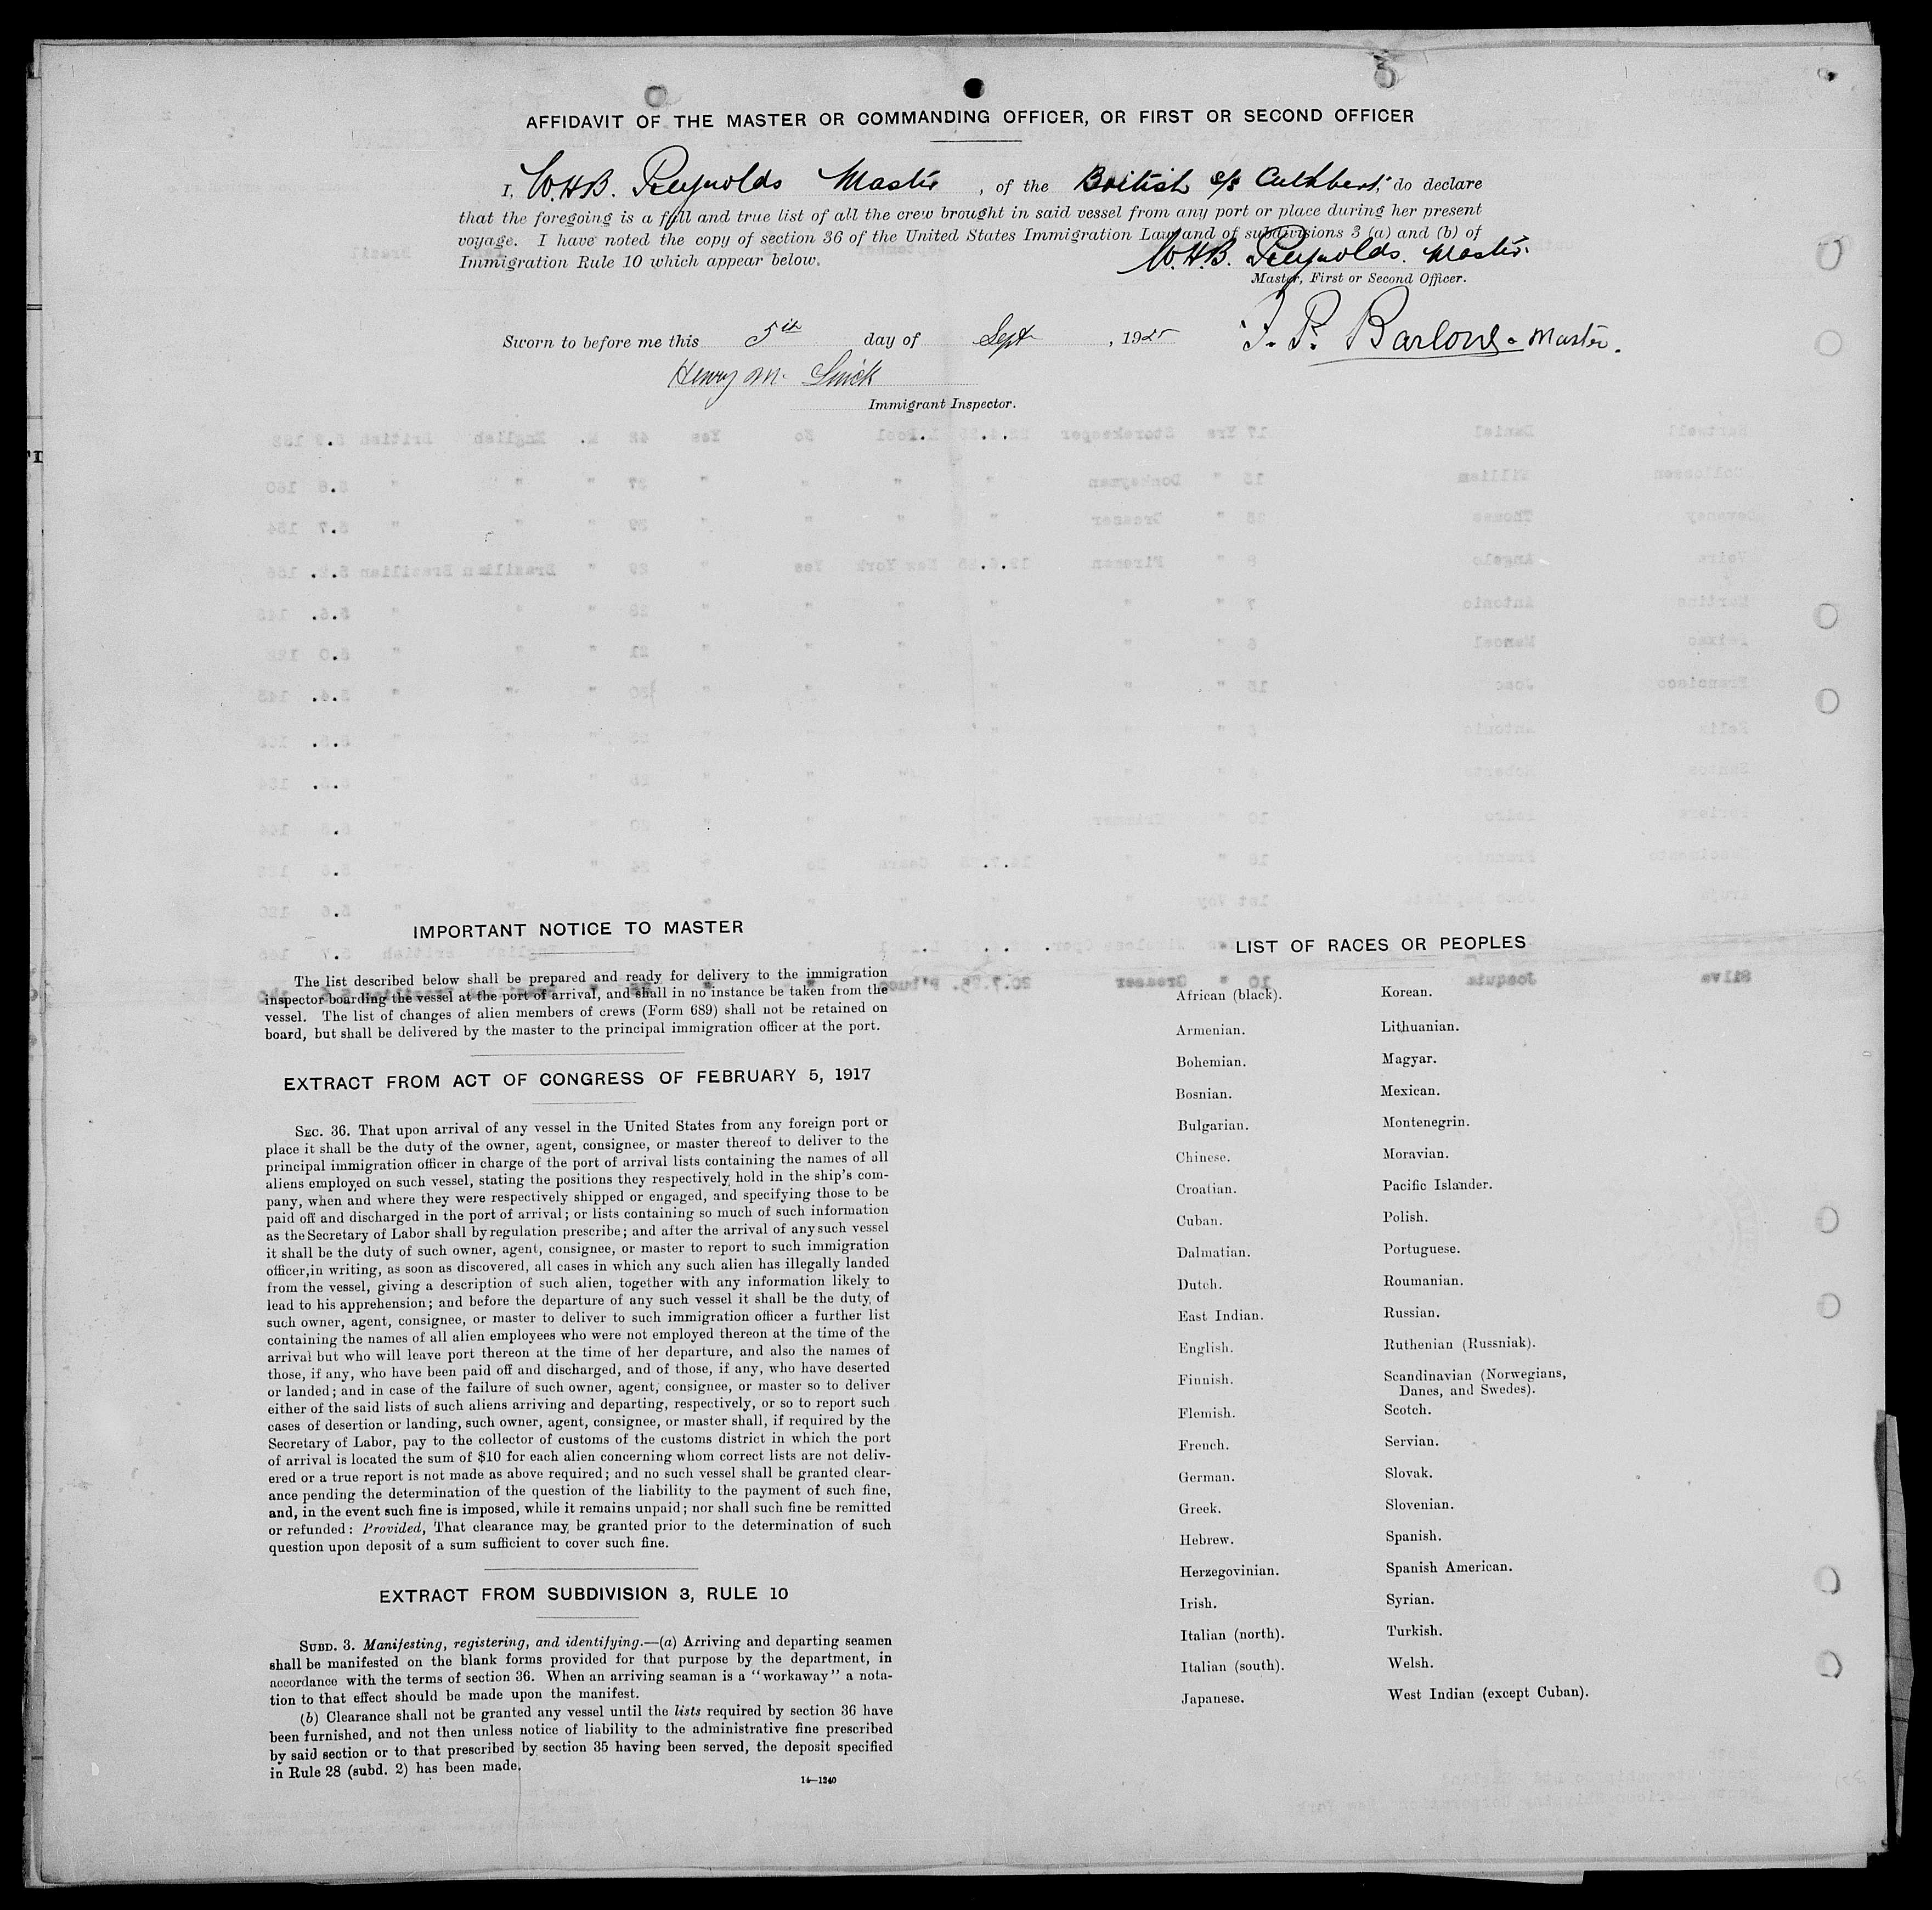 AFFIDAVIT OF THE MASTER OR COMMANDING OFFICER, OR FIRST OR SECOND OFFICER
I, W.H.B. Reynolds Master, of the British s/s Cuthbert, do declare
that the foregoing is a full and true list of all the crew brought in said vessel from any port or place during her present
voyage. I have noted the copy of section 36 of the United States Immigration Law and of subdivisions 3 (a) and (b) of
Immigration Rule 10 which appear below.
W.H.B. Reynolds. Master.
Master, First or Second Officer.
Sworn to before me this 5th day of Sept, 1925
Master.
Henry M.
Immigrant Inspector.
IMPORTANT NOTICE TO MASTER
The list described below shall be prepared and ready for delivery to the immigration
inspector boarding the vessel at the port of arrival, and shall in no instance be taken from the
vessel. The list of changes of alien members of crews (Form 689) shall not be retained on
board, but shall be delivered by the master to the principal immigration officer at the port.
EXTRACT FROM ACT OF CONGRESS OF FEBRUARY 5, 1917
SEC. 36. That upon arrival of any vessel in the United States from any foreign port or
place it shall be the duty of the owner, agent, consignee, or master thereof to deliver to the
principal immigration officer in charge of the port of arrival lists containing the names of all
aliens employed on such vessel, stating the positions they respectively hold in the ship's com-
pany, when and where they were respectively shipped or engaged, and specifying those to be
paid off and discharged in the port of arrival; or lists containing so much of such information
as the Secretary of Labor shall by regulation prescribe; and after the arrival of any such vessel
it shall be the duty of such owner, agent, consignee, or master to report to such immigration
officer, in writing, as soon as discovered, all cases in which any such alien has illegally landed
from the vessel, giving a description of such alien, together with any information likely to
lead to his apprehension; and before the departure of any such vessel it shall be the duty of
such owner, agent, consignee, or master to deliver to such immigration officer a further list
containing the names of all alien employees who were not employed thereon at the time of the
arrival but who will leave port thereon at the time of her departure, and also the names of
those, if any, who have been paid off and discharged, and of those, if any, who have deserted
or landed; and in case of the failure of such owner, agent, consignee, or master so to deliver
either of the said lists of such aliens arriving and departing, respectively, or so to report such
cases of desertion or landing, such owner, agent, consignee, or master shall, if required by the
Secretary of Labor, pay to the collector of customs of the customs district in which the port
of arrival is located the sum of $10 for each alien concerning whom correct lists are not deliv-
ered or a true report is not made as above required; and no such vessel shall be granted clear-
ance pending the determination of the question of the liability to the payment of such fine,
and, in the event such fine is imposed, while it remains unpaid; nor shall such fine be remitted
or refunded: Provided, That clearance may be granted prior to the determination of such
question upon deposit of a sum sufficient to cover such fine.
EXTRACT FROM SUBDIVISION 3, RULE 10
SUBD. 3. Manifesting, registering, and identifying.—(a) Arriving and departing seamen
shall be manifested on the blank forms provided for that purpose by the department, in
accordance with the terms of section 36. When an arriving seaman is a "workaway" a nota-
tion to that effect should be made upon the manifest.
(b) Clearance shall not be granted any vessel until the lists required by section 36 have
been furnished, and not then unless notice of liability to the administrative fine prescribed
by said section or to that prescribed by section 35 having been served, the deposit specified
in Rule 28 (subd. 2) has been made.
14—1240
LIST OF RACES OR PEOPLES
African (black).
Armenian.
Bohemian.
Bosnian.
Bulgarian.
Chinese.
Croatian.
Cuban.
Dalmatian.
Dutch.
East Indian.
English.
Finnish.
Flemish.
French.
German.
Greek.
Hebrew.
Herzegovinian.
Irish.
Italian (north).
Italian (south).
Japanese.
Korean.
Lithuanian.
Magyar.
Mexican.
Montenegrin.
Moravian.
Pacific Islander.
Polish.
Portuguese.
Roumanian.
Russian.
Ruthenian (Russniak).
Scandinavian (Norwegians,
Danes, and Swedes).
Scotch.
Servian.
Slovak.
Slovenian.
Spanish.
Spanish American.
Syrian.
Turkish.
Welsh.
West Indian (except Cuban).